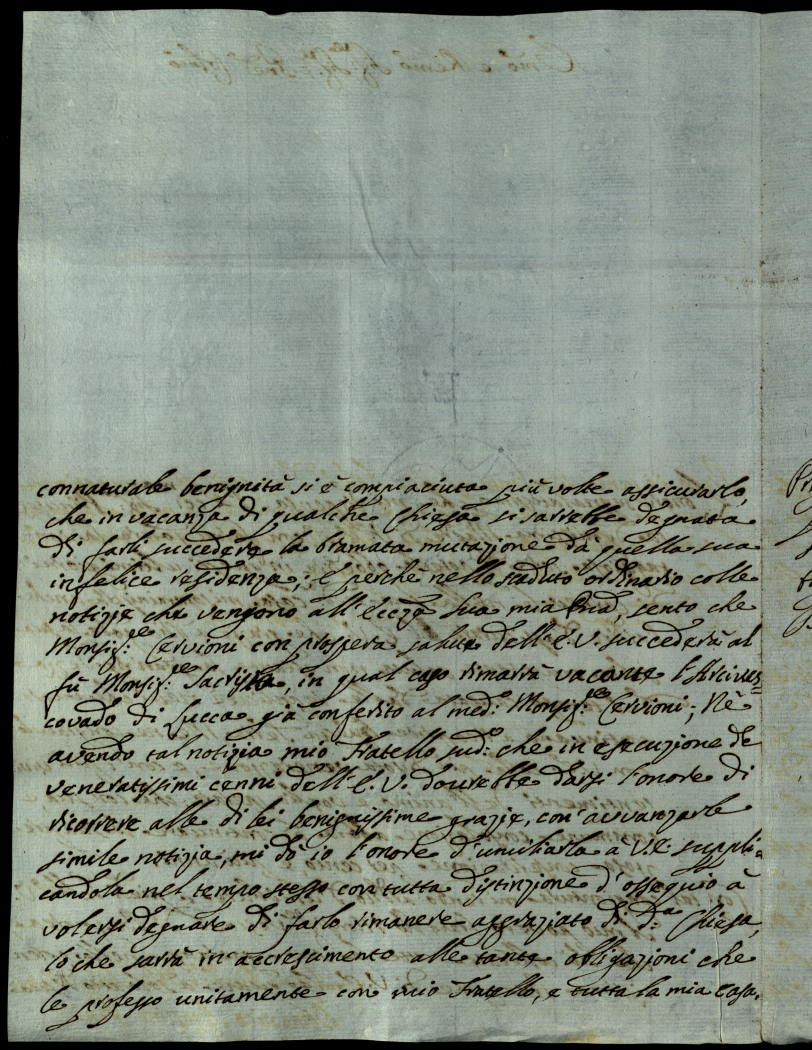 connaturale benignità si è compiaciuta più volte assicurarlo,
che in vacanza di qualche Chiesa si sarrebbe degnata
di farli succedere la bramata mutazione da quella sua
infelice residenza; E perchè nello scaduto ordinario colle
notizie che vengono all'Eccza Sua mia Prad, sento che
Monsigr.e Cervioni con prospera salute dell'E.V. succederà al
fù Monsigr.e Sacrista, in qual caso rimarrà vacante l'Arcives=
covado di Lucca già conferito al med.o Monsigr.e Cervioni; Nè
avendo tal notizia mio Fratello sud.o che in esecuzione de
veneratissimi cenni dell'E.V. dourebbe darsi l'onore di
ricorrere alle di lei benignissime grazie, con avvanzarle
simile notizia, mi dò io l'onore d'umiliarla à V.E. suppli=
candola nel tempo stesso con tutta distinzione d'ossequio à
volersi degnare di farlo rimanere aggraziato di d.a Chiesa,
lo che sarrà in accrescimento alle tante obligazioni che
le professo unitamente con mio Fratello, e tutta la mia Casa.